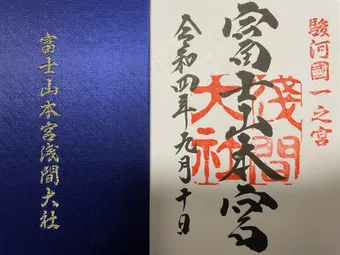 富士山本宮浅間大社
駿河國一之宮
富士山本宮
淺間大社
令和四年九月十日